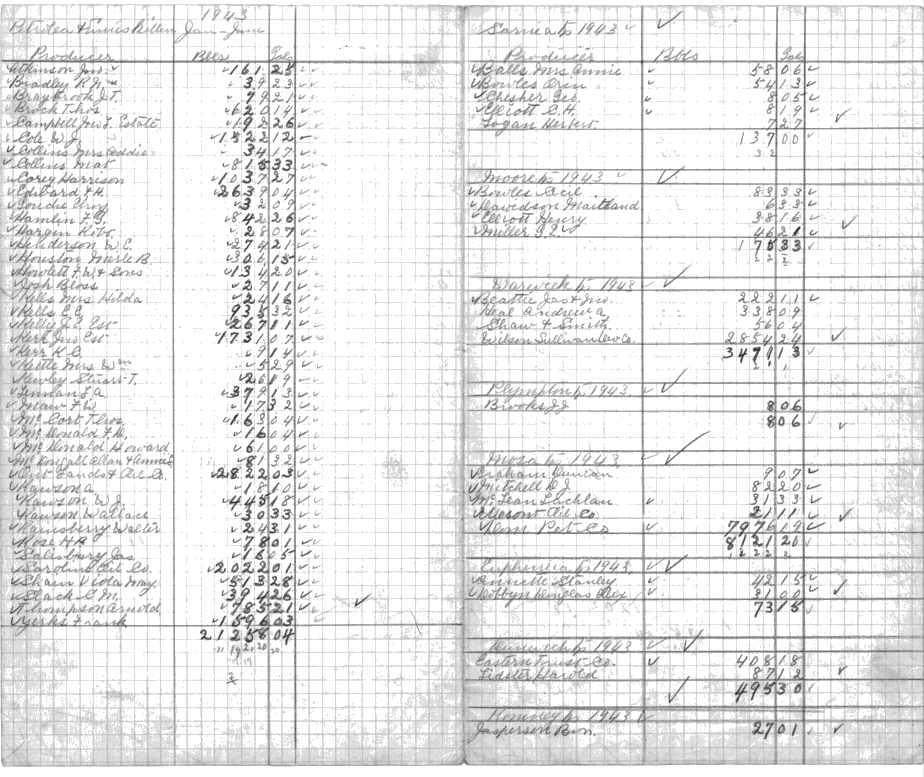 1943
Petrolea & Enniskillen Jan-June
Producer Bbls Gals
Atkinson Jno. 161 25
Bradley R.N. 39 23
Braybrook J.T. 79 21
Brock Thos 620 14
Campbell Jno L Estate 192 26
Cole W.J. 1522 12
Collins Mrs Addie 34 17
Collins Mat 815 33
Corey Harrison 1037 27
Edward F.H. 2639 04
Goudie Chas 32 09
Hamlin F.G. 842 26
Hargin Robt 28 07
Henderson W.C. 274 21
Houston Merle B. 306 15
Howlett F.W & Sons 134 20
Josh Bloss 27 11
Kells Mrs Hilda 24 16
Kells E.C. 935 32
Kelly J.E. Est 267 11
Kerr Jno Est 1731 07
Kerr K.C. 9 14
Kettle Mrs Wm 5 29
Kewley Stuart T. 26 19
Lennan L.A. 379 13
Maw F.W. 17 32
McCort Thos 163 04
McDonald F.D. 16 04
McDonald Howard 61 00
McDougall Allan & Annie 81 32
Oil Lands & Oil Co. 2822 03
Rawson A. 18 10
Rawson W.J. 445 18
Rawson Wallace 30 33
Rainsberry Walter 24 31
Rose H.B. 78 01
Salisbury Jas 16 05
Saroline Oil Co. 2022 01
Shaw Viola May 513 28
Slack C.M. 394 26
Thompson Arnold 785 21
Yerks Frank 1596 03
21258 04
Sarnia tp 1943
Producer Bbls Gals
Balls Mrs Annie 58 06
Bowles Orin 54 13
Chesher Geo. 8 05
Elliott C.H. 8 19
Logan Herbert. 7 27
137 00
3 2
Moore tp 1943
Bowles Cecil 83 33
Davidson Maitland 6 33
Elliott Henry 38 16
Miller G.E. 46 21
175 33
2 2 2
Warwick tp 1943
Beattie Jas & Jno. 222 11
Heal Andrew A 338 09
Shaw & Smith 56 04
Wilson Sullivan Lev Co. 2854 24
3471 13
2 1 1
Plympton tp 1943
Brooks JJ 8 06
8 06
Mosa tp 1943
Graham Duncan 9 07
Mitchell D.J 82 20
McLean Lachlan 31 33
Mosont Oil Co. 21 11
Dom Pet Co 7976 19
8121 20
1 2 2 2
Euphemia tp 1943
Annette Stanley 42 15
Dobbyn Douglas Alex 31 00
73 15
Dunwich tp 1943
Eastern Trust Co. 408 18
Lidster Harold 87 12
495 30
Romney tp 1943
Jasperson Bon. 27 01